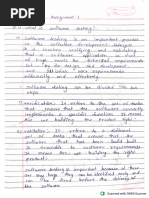 Assignment 1
Q.1 what is software testing?
→ software testing is an important process
in the software development lifecycle
It involves verifying and validating
that a software application is free
of bugs, meets the technical requirements
set by its design and development
and satisfies user requirements
efficiently and effectively.
→ software testing can be divided into two
steps
1) verification: It refers to the set of tasks
that ensure that the software correctly
implements a specific function. It means
are we building the product right?
2) validation: It refers to a different set of
tasks that ensure that the software
that has been built is
to customer requirements. It means
are we building the right
product?
→ software testing is important because if there
are any bugs they can be identified early and
fixed before the delivery of
the software
Scanned with OKEN Scanner